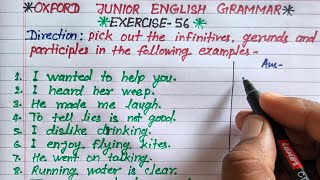 *OXFORD JUNIOR ENGLISH GRAMMAR*
*EXERCISE-56*
Direction: pick out the infinitives, gerunds and
participles in the following examples-
Ans-
1. I wanted to help you.
2. I heard her weep.
3. He made me laugh.
4. To tell lies is not good.
5. I dislike drinking.
6. I enjoy flying kites.
7. He went on talking.
8. Running water is clear.